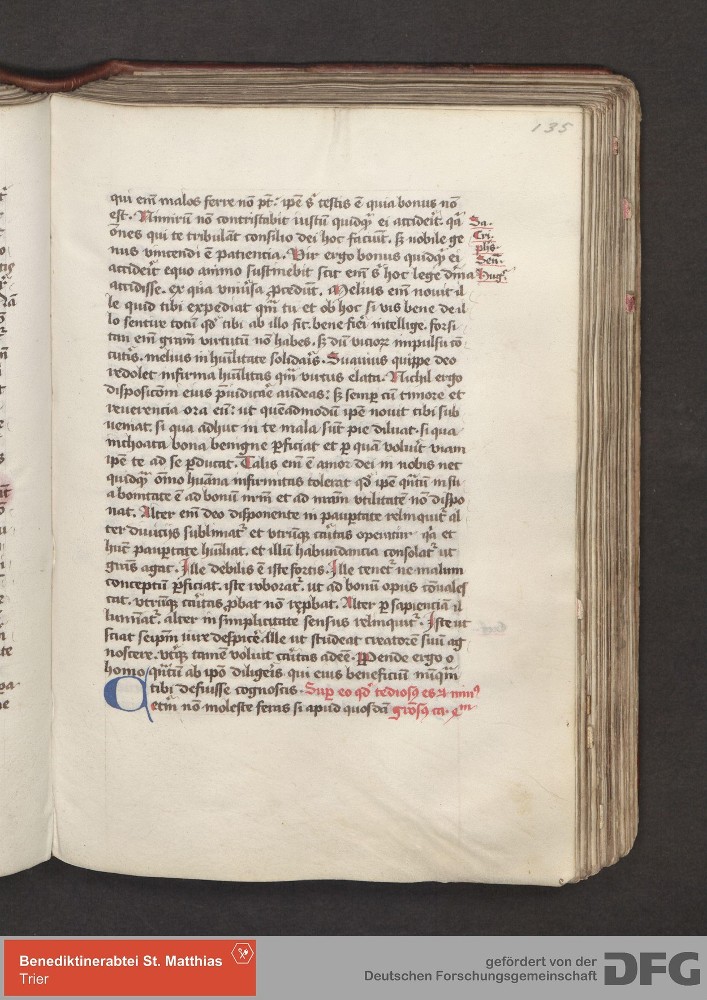 135
qui em̄ malos ferre nō pt̄: ipē s̄ testis ē quia bonus nō
est. Nimirū nō contristabit iustū quidq̄ ei accideit̄. qr̄
ōnes qui te tribulāt consilio dei hoc faciūt. s̄ nobile ge
nus vincendi ē patiencia. Vir ergo bonus quidq̄ ei
acciderit̄ equo animo sustinebit scit em̄ s̄ hoc lege dīna
accidisse. ex qua vniūsa ꝓcedūt. Melius em̄ nouit il
le quid tibi expediat qm̄ tu et ob hoc si vis bene de il
lo sentire totū qd̄ tibi ab illo fit. bene fieī intellige. forsi
tan em̄ grām virtutū nō habes. s̄ dū vicioꝝ impulsu cō
cutīs. melius in hūilitate solidaīs. Suauius quippe deo
redolet infirma hūilitas qm̄ virtus elata. Nichil ergo
disposicōni eius p̄iudicaīe audeas: s̄ semꝑ cū timore et
reuerencia ora eū: ut quēadmodū ipē nouit tibi sub
ueniat. si qua adhuc in te mala sūt pie diluat. si qua
inchoata bona benigne ꝑficiat et ꝑ quā voluīt viam
ipē te ad se ꝑducat. Talis em̄ ē amor dei in nobis nec
quidq̄ ōīno hūana infirmitas tolerat qd̄ ipē q̄ntū in su
a bonitate ē ad bonū nr̄m et ad nr̄am vtilitatē nō dispo
nat. Alter em̄ deo disponente in pauꝑtate relinquit̄ al
ter diuiciis sublimat̄ et vtrūq̄ cāitas operatur qr̄ et
hūc pauꝑtage hūiliat. et illū habundancia consolat̄ ut
grās agat. Ille debilis ē iste fortis. Ille tenet̄ ne malum
conceptū ꝑficiat. iste roborat̄. ut ad bonū opus cōuales
cat. vtrūq̄ cāitas ꝓbat nō rep̄bat. Alter ꝑ sapienciā il
luminat̄. alter in simplicitate sensus relinquit̄. Iste ut
sciat seipm̄ iure despicē. Ille ut studeat creatorē suū ag
noscere. vtīq̄ tamē voluit cāitas adēē. Ꝑpende ergo o
homo q̄ntū ab ipō diligeīs qui eius beneficiū nūq̄m
tibi defuisse cognoscis. Suꝑ eo qd̄ tediosꝰ es et minꝰ
etm̄ nō moleste feras si apud quosdā grōsꝰ ca. xm
Sa.
Cri.
phs̄.
Sen̄.
huḡ.
Benediktinerabtei St. Matthias
Trier
gefördert von der
Deutschen Forschungsgemeinschaft
DFG